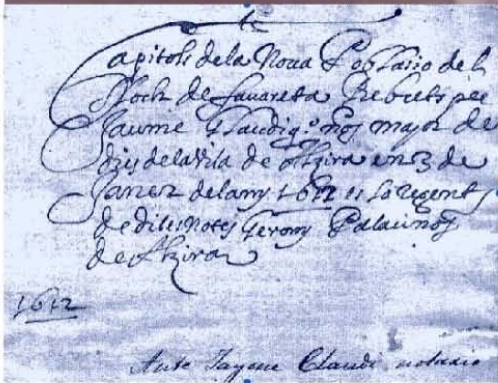 Capitols dela Noua Poblasio del
Lloch de fauareta Rebuts per
Jaume Claudi q.º noy major de
dies dela vila de Alzira en 3 de
Janer del any 1612 es lo regent
de dites notes Gerony Palau noy
de Alzira
1612
Ante Jayme Claudi notario